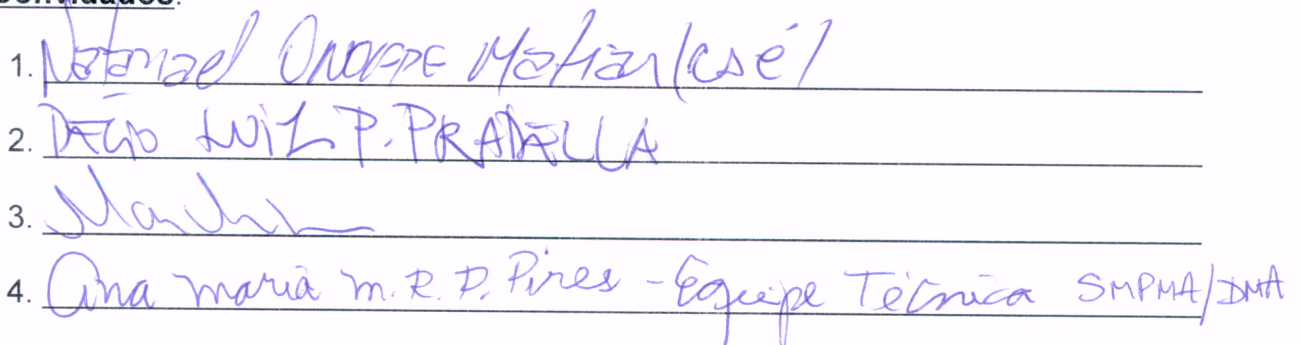 Convidados:
1. Natanael Onofre Matias (Casé)
2. DÉCIO LUIZ P. PRADELLA
3.
4. Ana maria m. R. P. Pires - Equipe Técnica SMPMA/DMA